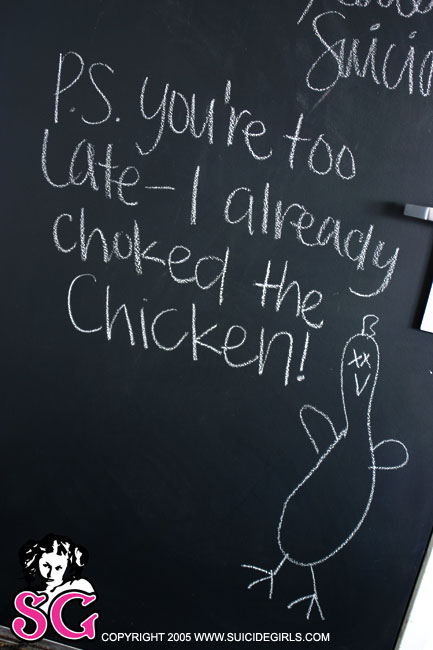 P.S. you're too
Late - I already
choked the
Chicken!
SG
COPYRIGHT 2005 WWW.SUICIDEGIRLS.COM